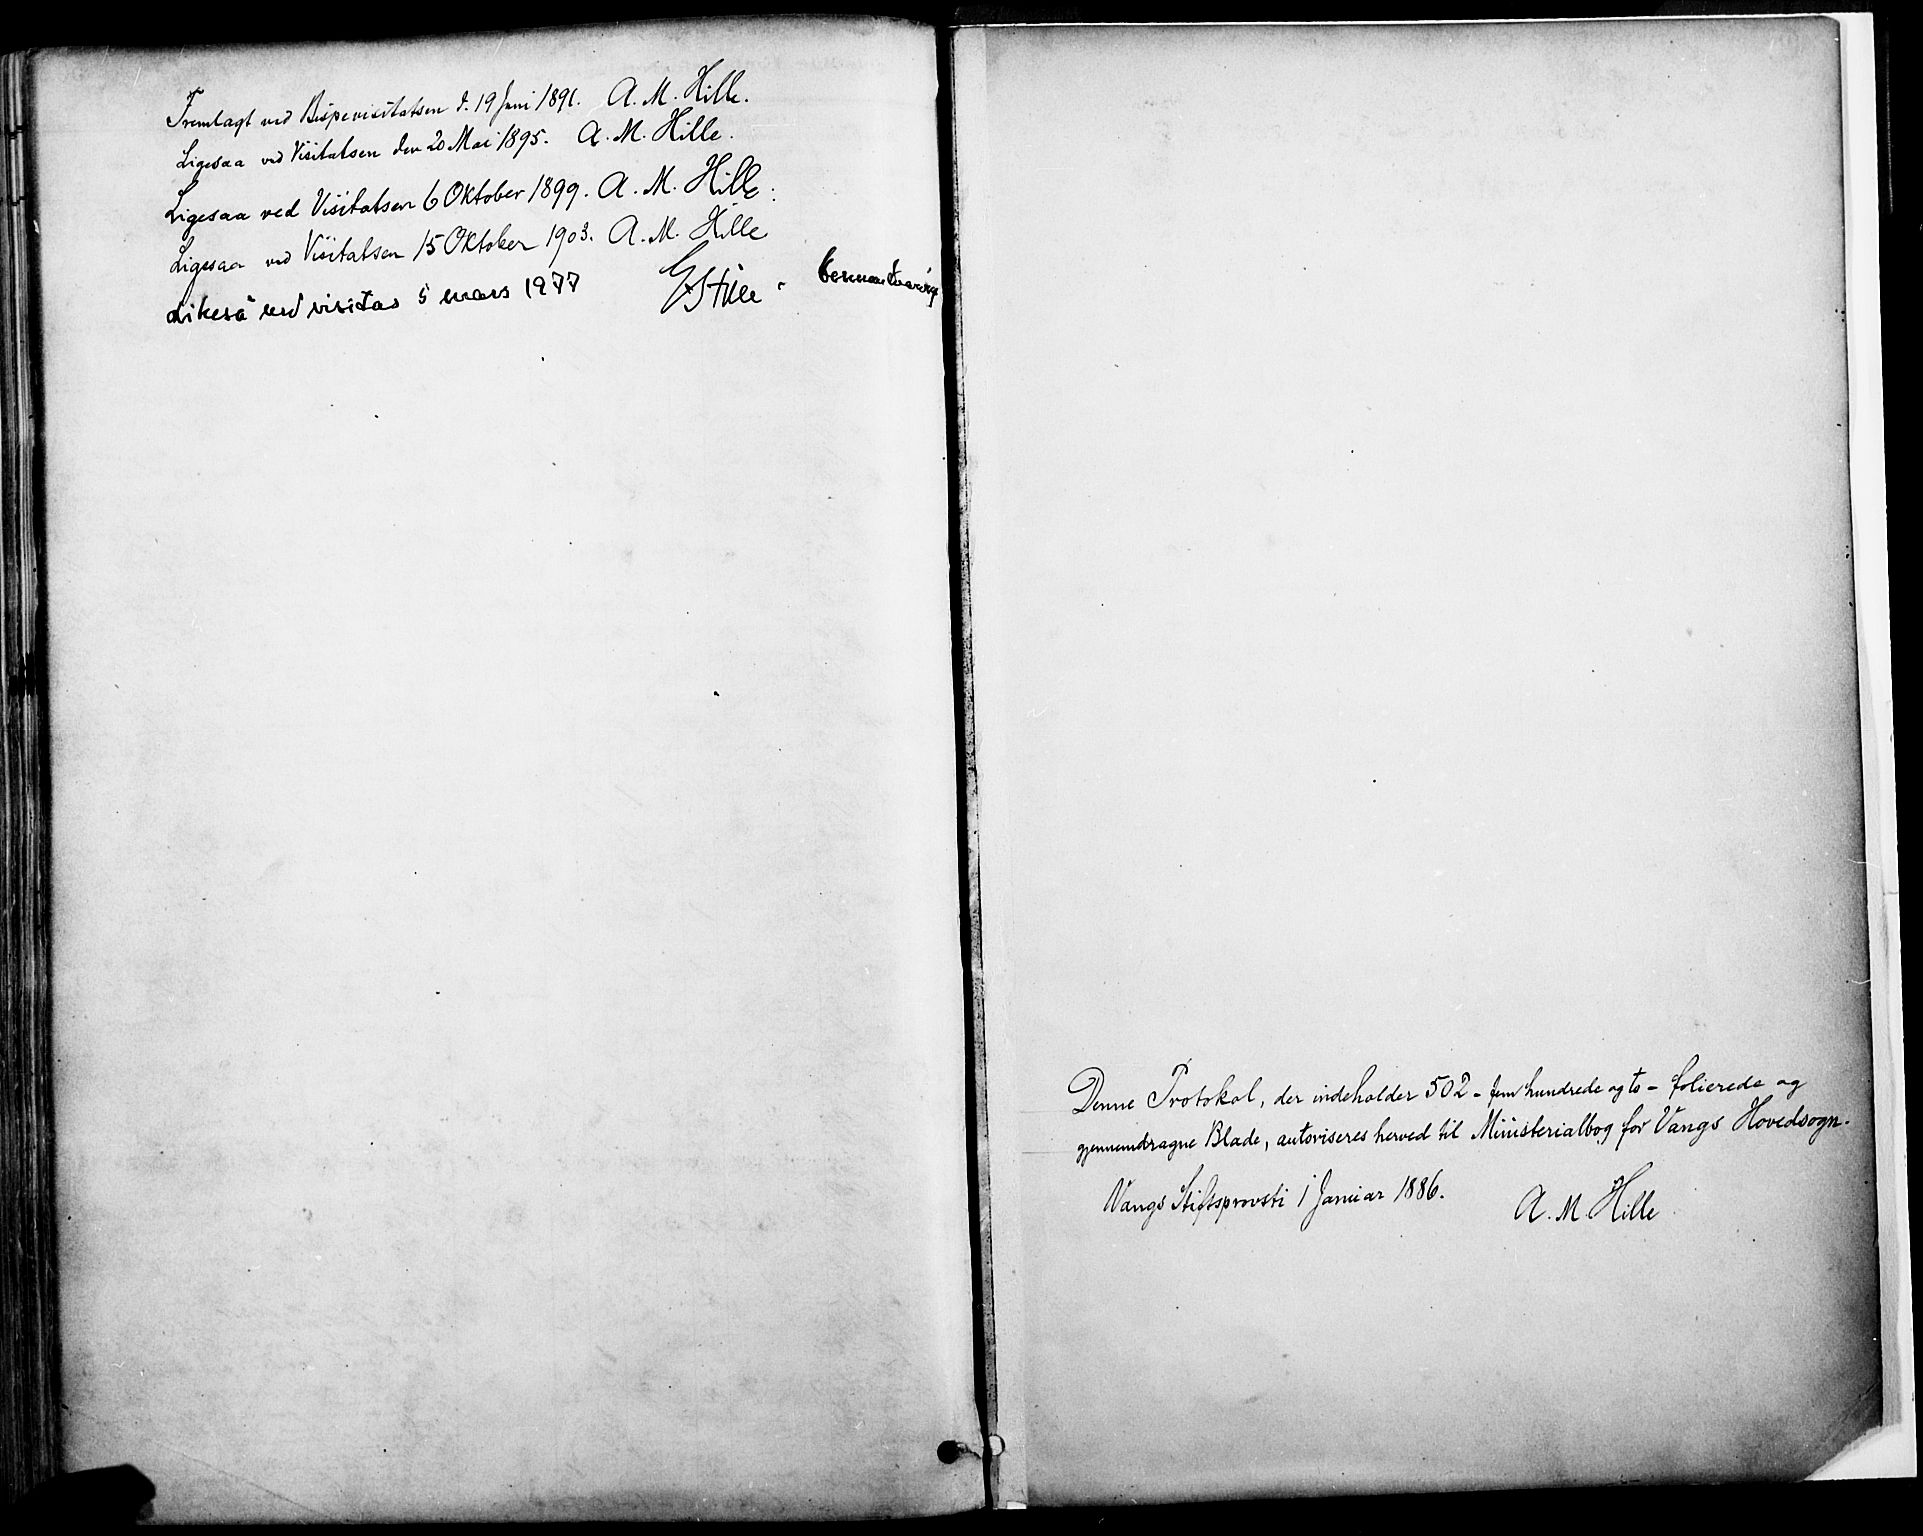 Fremlagt ved Bispevisitatsen d. 19 Juni 1891. A. M. Hille.
Ligesaa ved Visitatsen den 20 Mai 1895. A. M. Hille.
Ligesaa ved Visitatsen 6 Oktober 1899. A. M. Hille.
Ligesaa ved Visitatsen 15 Oktober 1903. A. M. Hille
Likeså ved visitas 5 mars 1977
Denne Protokol, der indeholder 502 - fem hundrede og to - folierede og
gjennemdragne Blade, autoriseres herved til Ministerialbog for Vangs Hovedsogn.
Vangs Stiftsprovsti 1 Januar 1886.
A. M. Hille